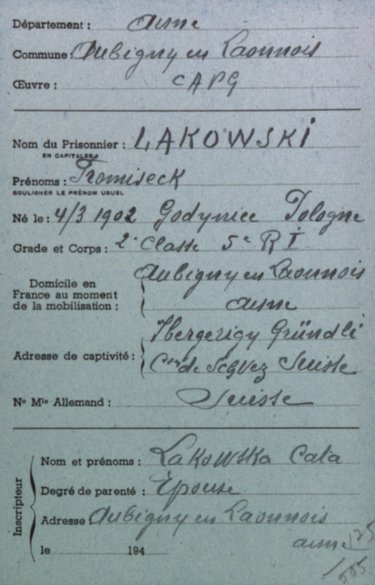 Département : Aisne
Commune Aubigny en Laonnois
Œuvre : CAPG
Nom du Prisonnier : LAKOWSKI
EN CAPITALES
Prénoms : Fromiseck
SOULIGNER LE PRÉNOM USUEL
Né le : 4/3 1902 Godynice Pologne
Grade et Corps : 2e Classe 5e R I
Domicile en
France au moment
de la mobilisation :
Aubigny en Laonnois
Aisne
Adresse de captivité :
Gründli
de Suisse
No Mle Allemand : Suisse
Inscripteur
Nom et prénoms : Lakowska Cata
Degré de parenté : Épouse
Adresse Aubigny en Laonnois
Aisne
le 194